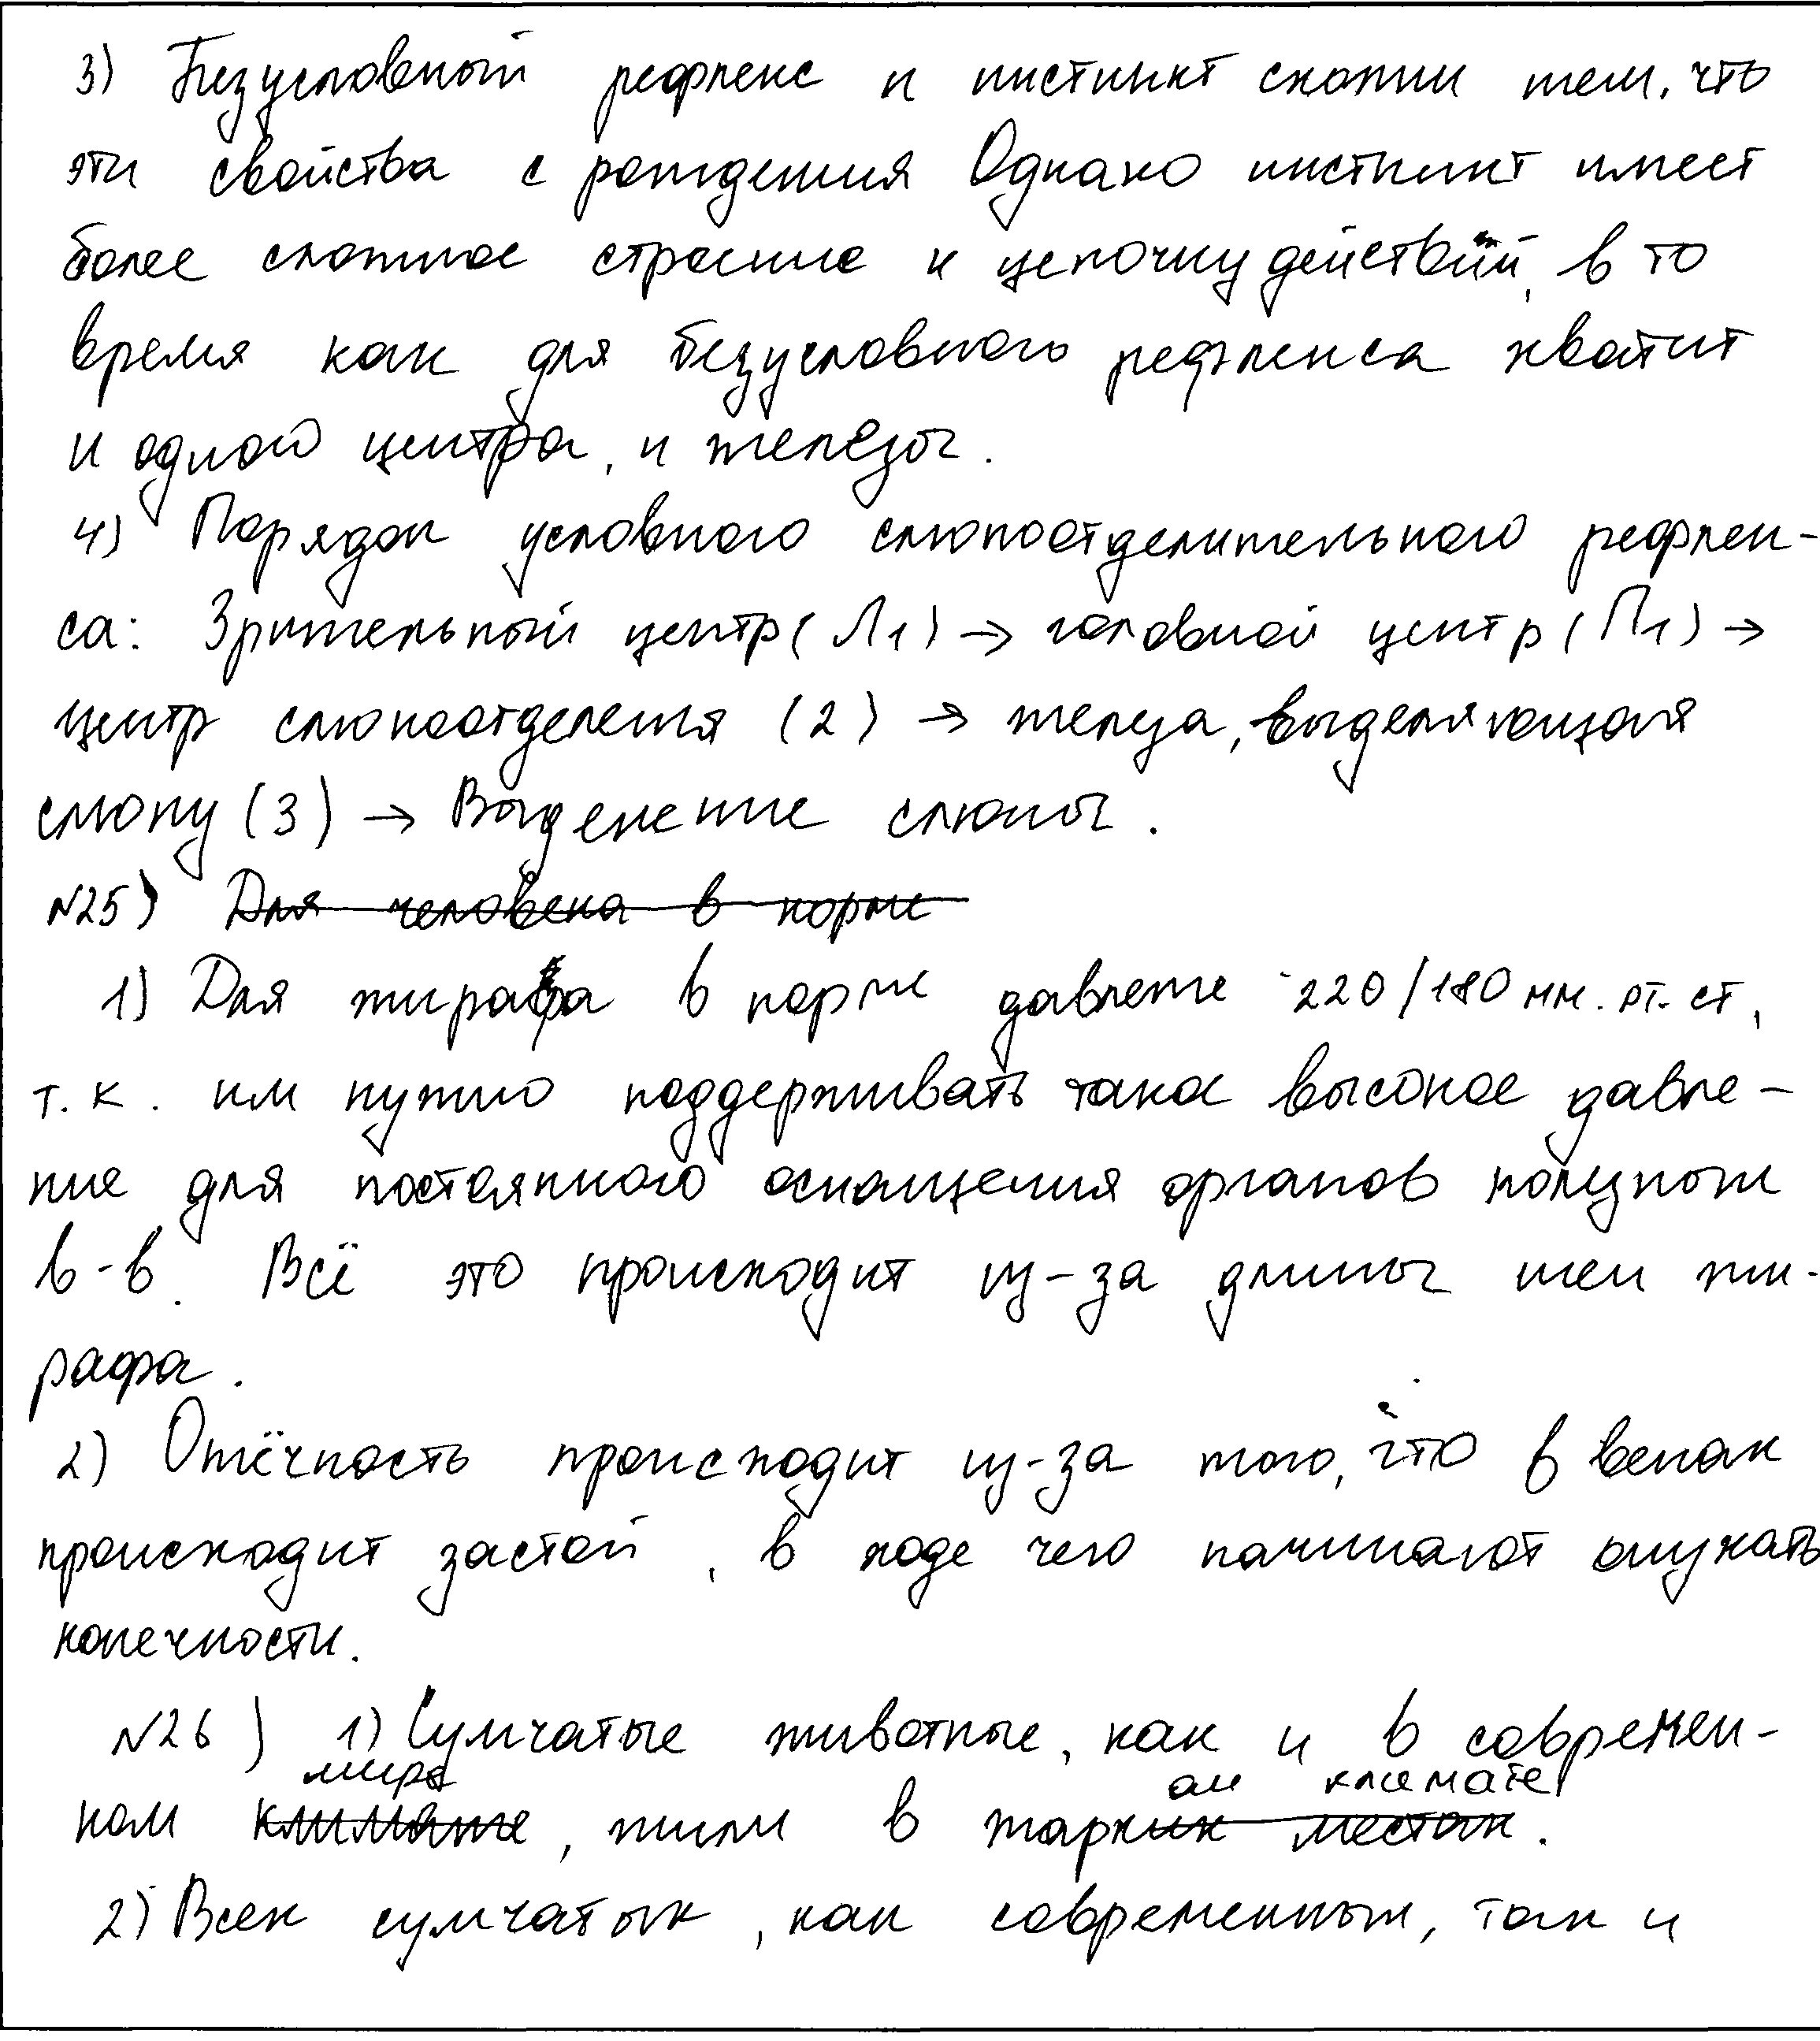 3) Безусловный рефлекс и инстинкт схожи тем, что
эти свойства с рождения Однако инстинкт имеет
более сложное строение и цепочку действий, в то
время как для безусловного рефлекса хватит
и одной центра, и железы.
4) Порядок условного слюноотделительного рефлек-
са: Зрительный центр (Л1) → головной центр (П1) →
центр слюноотделения (2) → железа, выделяющая
слюну (3) → Выделение слюны.
№25) Для человека в норме
1) Для жирафа в норме давление 220/180 мм. рт. ст,
т.к. им нужно поддерживать такое высокое давле-
ние для постоянного оснащения органов полезным
в-в. Всё это происходит из-за длины шеи жи-
рафа.
2) Отёчность происходит из-за того, что в венах
происходит застой, в ходе чего начинают опухать
конечности.
№26) 1) Сумчатые животные, как и в современ-
мире ом климате
ном климате, жили в жарких местах.
2) Всех сумчатых, как современных, так и